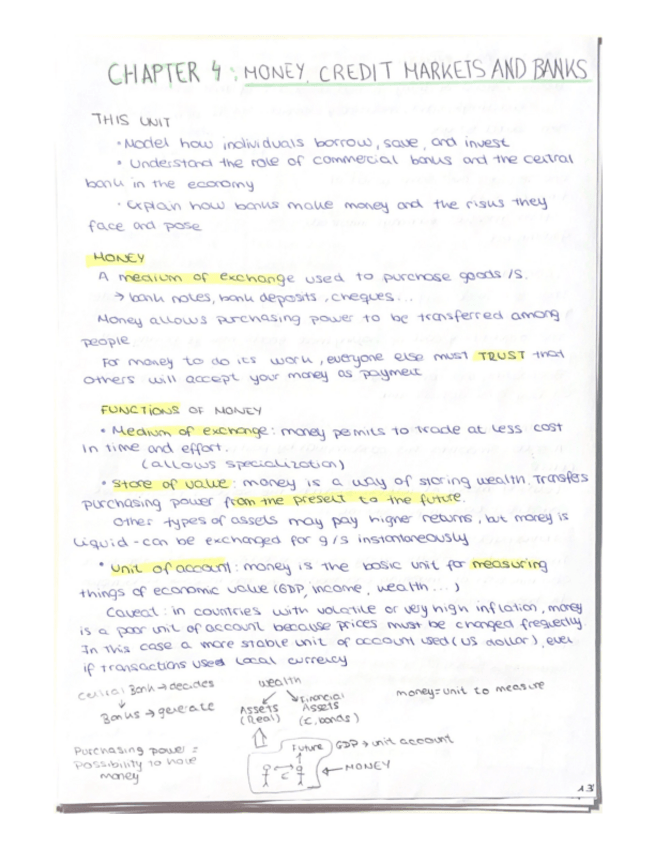 CHAPTER 4: MONEY, CREDIT MARKETS AND BANKS
THIS UNIT
• Model how individuals borrow, save, and invest
• Understand the role of commercial banks and the central
bank in the economy
• Explain how banks make money and the risks they
face and pose
MONEY
A medium of exchange used to purchase goods /s.
→ bank notes, bank deposits, cheques...
Money allows purchasing power to be transferred among
people
For money to do its work, everyone else must TRUST that
others will accept your money as payment
FUNCTIONS OF MONEY
• Medium of exchange: money permits to trade at less cost
in time and effort.
(allows specialization)
• Store of value: money is a way of storing wealth. Transfers
purchasing power from the present to the future.
Other types of assets may pay higher returns, but money is
liquid - can be exchanged for g/s instantaneously
• Unit of account: money is the basic unit for measuring
things of economic value (GDP, income, wealth...)
Caveat: in countries with volatile or very high inflation, money
is a poor unit of account because prices must be changed frequently
In this case a more stable unit of account used (US dollar), even
if transactions used local currency
Central Bank → decides
Banks → generate
Purchasing power =
Possibility to have
money
wealth
Assets
(Real)
Financial
Assets
(bonds)
Future
GDP → unit account
← MONEY
money = unit to measure
13